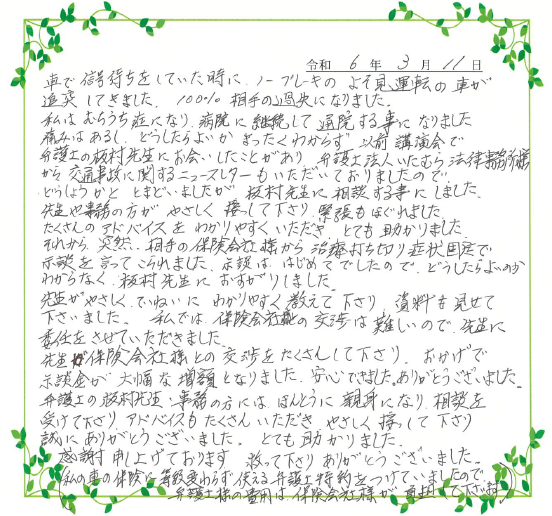 令和 6 年 3 月 11 日
車で信号待ちをしていた時に、ノーブレーキの よそ見運転の車が
追突してきました。100% 相手の過失になりました。
私は むちうち症になり、病院に継続して通院する事に なりました
痛みはあるし、どうしたらよいか まったくわからず、以前 講演会で
弁護士の板村先生にお会いしたことがあり、弁護士法人いたむら法律事務所様
から 交通事故に関するニュースレターもいただいておりましたので
どうしようかと とまどいましたが 板村先生に相談する事に しました。
先生や事務の方が やさしく 接して下さり、緊張もほぐれました。
たくさんの アドバイスを わかりやすく いただき とても 助かりました。
それから 突然、相手の保険会社様から 治療打ち切り症状固定で
示談を言ってこられました。示談は はじめて でしたので、どうしたらよいのか
わからなく、板村先生に おすがりしました。
先生がやさしく ていねいに わかりやすく 教えて下さり 資料も見せて
下さいました。 私では 保険会社様との交渉は 難しいので、先生に
委任をさせていただきました。
先生が保険会社様との 交渉をたくさんして下さり、おかげで
示談金が 大幅な増額 となりました、安心できました。ありがとうございました。
弁護士の板村先生・事務の方には ほんとうに 親身になり 相談を
受けて下さり アドバイスも たくさん いただき やさしく 接して下さり
誠に ありがとうございました。 とても 助かりました。
感謝申し上げております 救って下さり ありがとうございました。
(私の車の保険に 等級変わらず 使える 弁護士特約をつけていましたので
弁護士様の費用は 保険会社様が